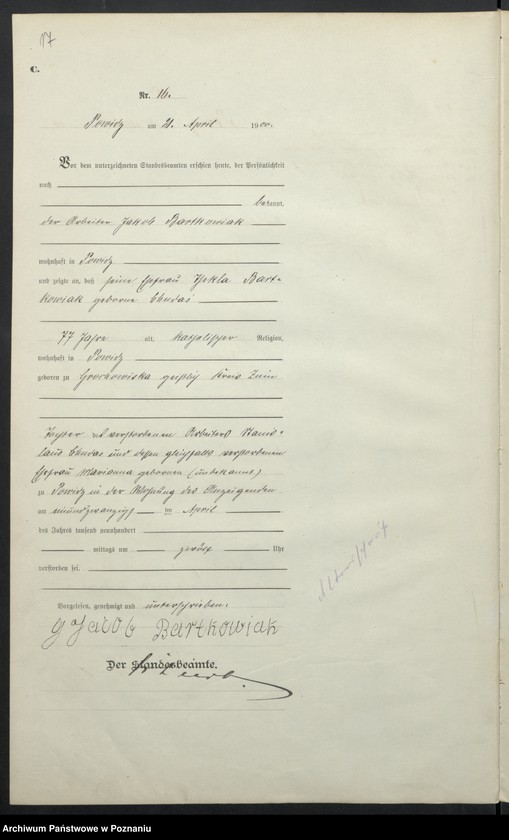 17
C.
Nr. 16.
Powidz am 21. April 1900.
Vor dem unterzeichneten Standesbeamten erschien heute, der Persönlichkeit
nach
bekannt,
der Arbeiter Jakob Bartkowiak
wohnhaft in Powidz
und zeigte an, daß seine Ehefrau Thekla Bart-
kowiak geborne
77 Jahre alt, katholischer Religion,
wohnhaft in Powidz
geboren zu Kreis Znin
Tochter des verstorbenen Arbeiters Stanis-
laus und dessen gleichfalls verstorbenen
Ehefrau Marianna geborenen (unbekannt)
zu Powidz in der Wohnung des Anzeigenden
am April
des Jahres tausend neunhundert
mittags um zwölf Uhr
verstorben sei.
Vorgelesen, genehmigt und unterschrieben.
Jacob Bartkowiak
Der Standesbeamte.
Archiwum Państwowe w Poznaniu